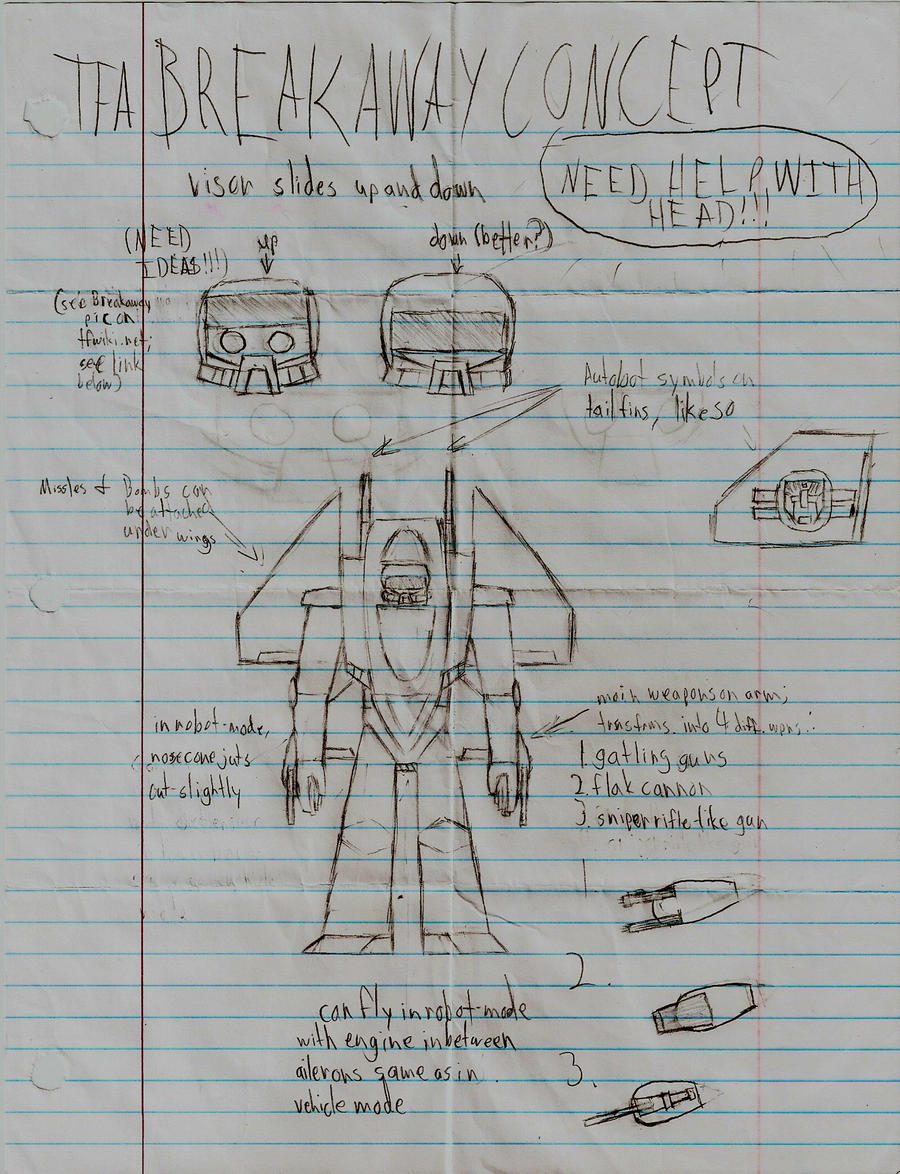 TFA BREAKAWAY CONCEPT
visor slides up and down
NEED HELP WITH
HEAD!!!
(NEED
IDEAS!!!)
up
down (better?)
(see Breakaway
pic on
tfwiki.net;
see link
below)
Autobot symbols on
tail fins, like so
Missles & Bombs can
be attached
under wings
in robot-mode,
nosecone juts
out slightly
main weapons on arm;
transfrms. into 4 diff. wpns.:
1. gatling guns
2. flak cannon
3. sniper rifle like gun
1.
2.
3.
can fly in robot-mode
with engine inbetween
ailerons same as in
vehicle mode